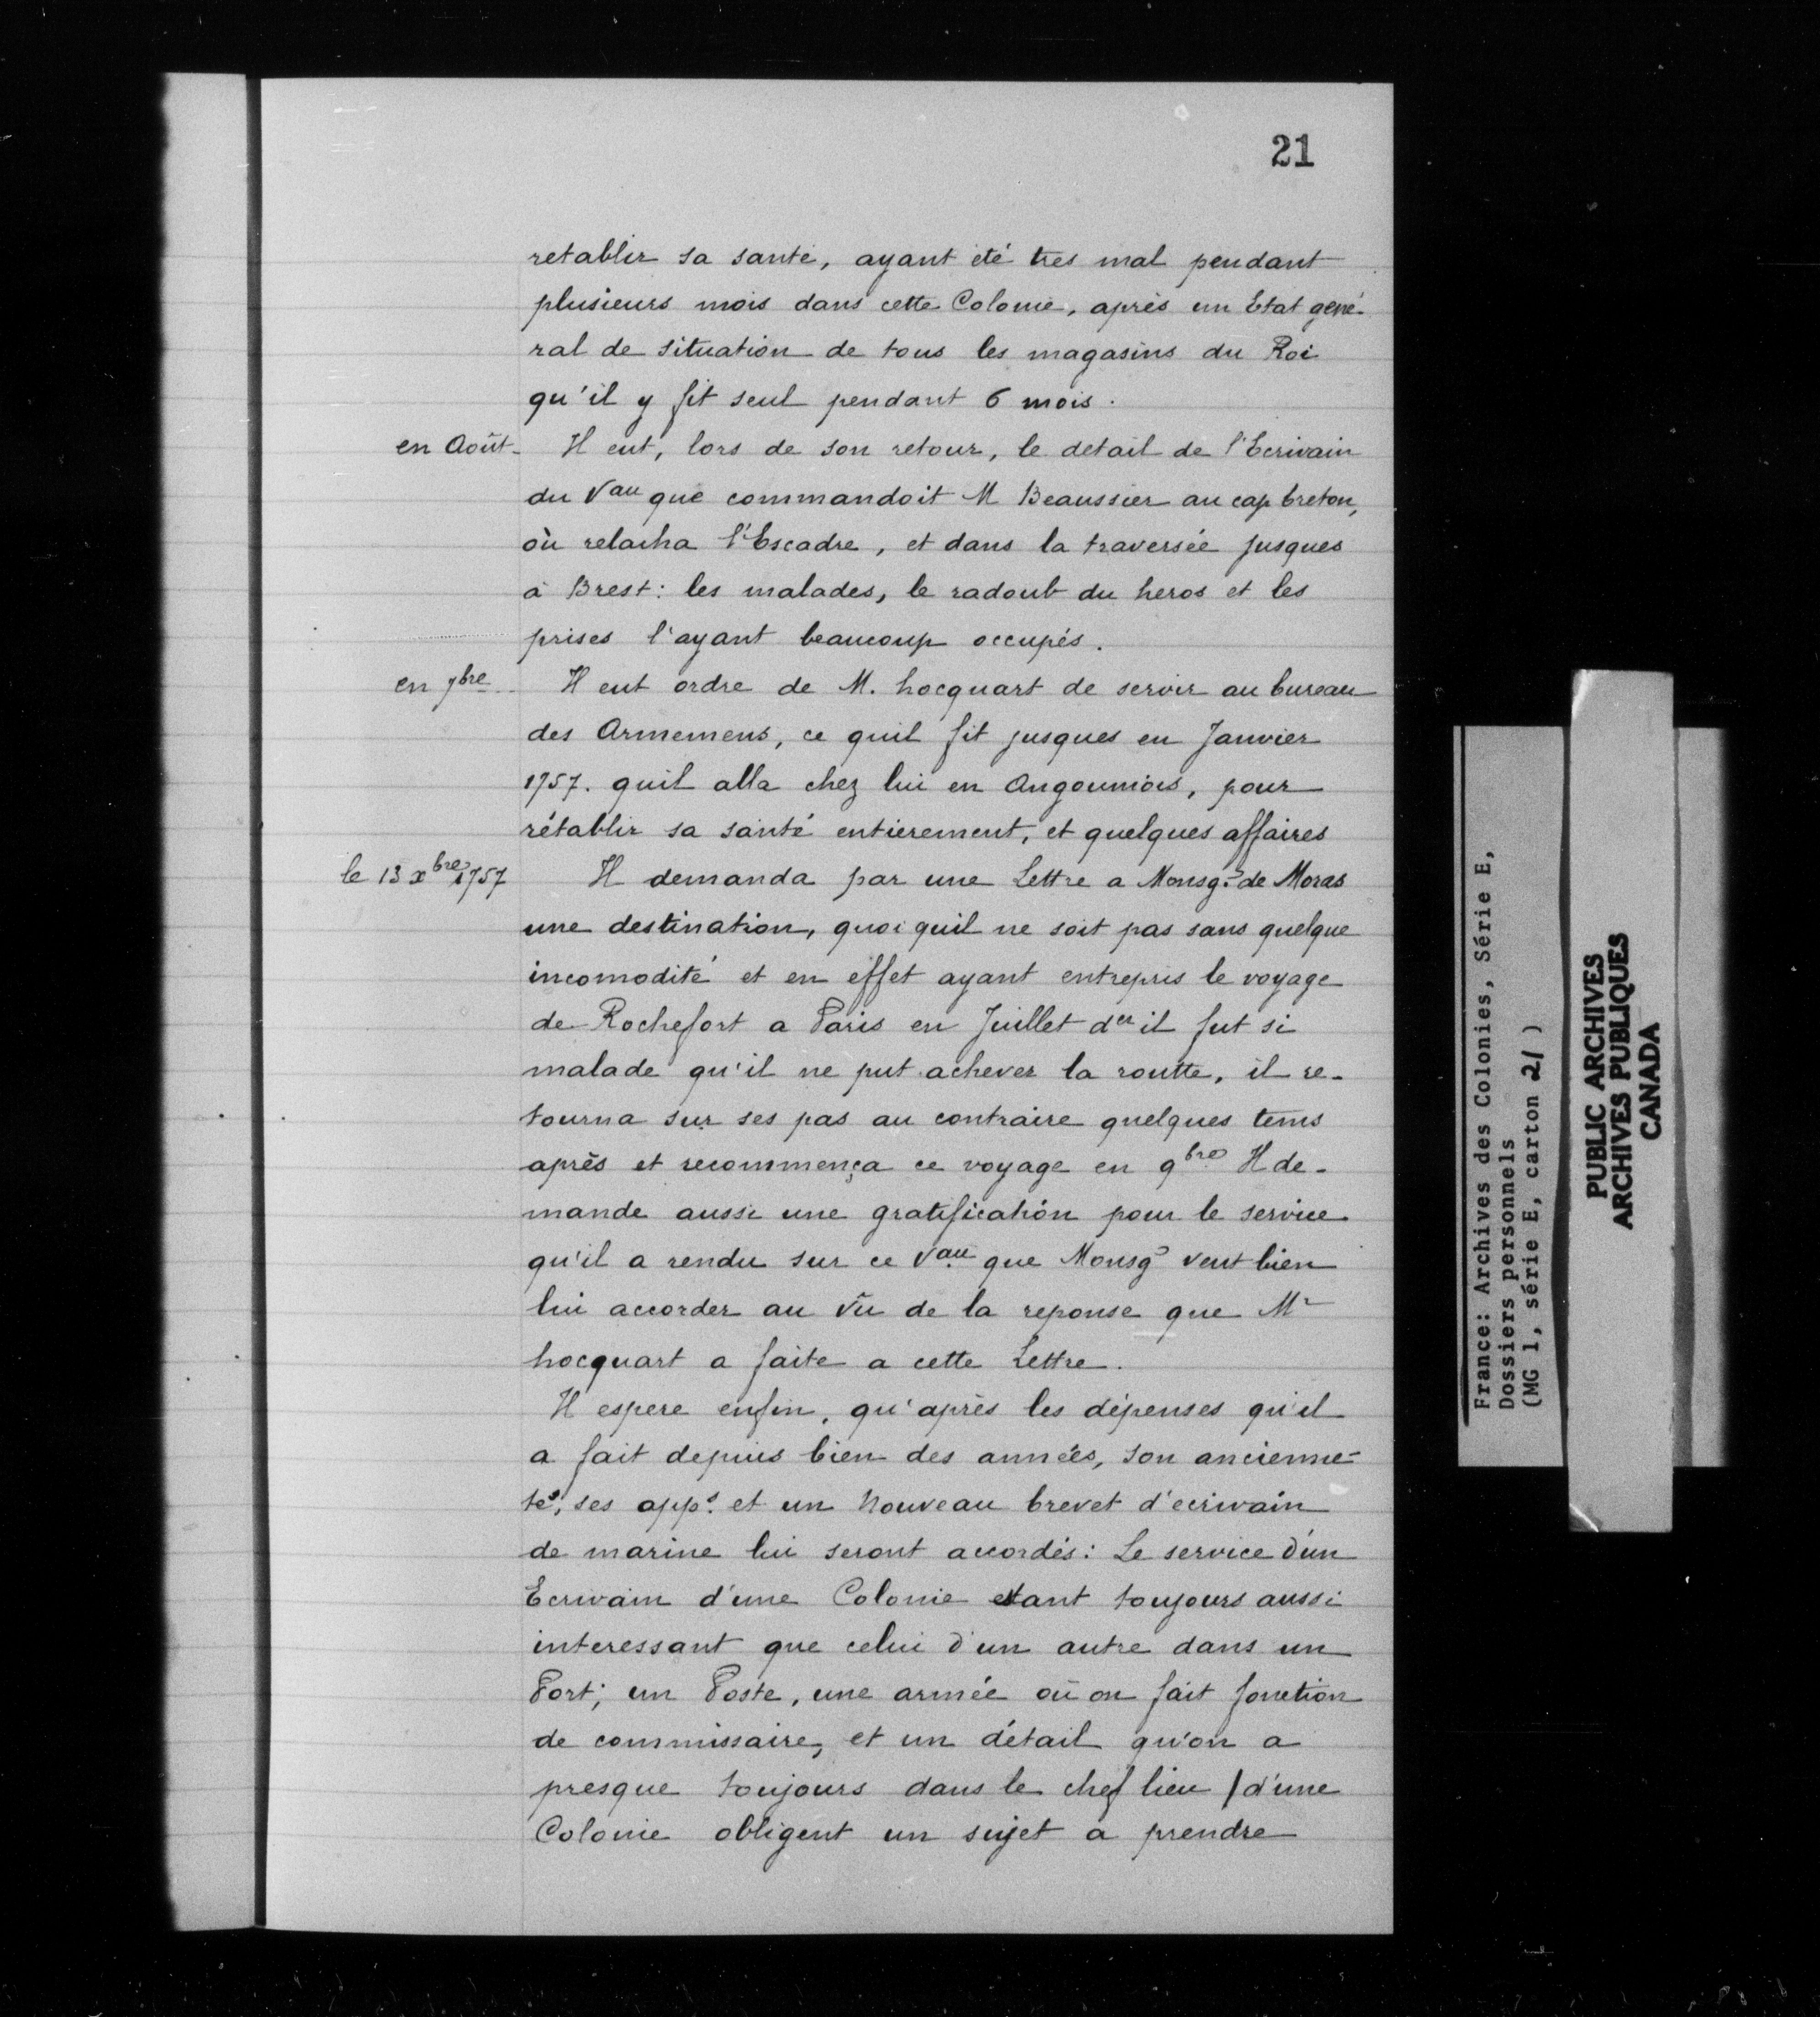 21
retablir sa santé, ayant été tres mal pendant
plusieurs mois dans cette Colonie, après un Etat gené-
ral de situation de tous les magasins du Roi
qu'il y fit seul pendant 6 mois.
en Août - Il eut, lors de son retour, le detail de l'Ecrivain
du Vau que commandoit M Beaussier au cap breton,
où relacha l'Escadre, et dans la traversée jusques
à Brest: les malades, le radoub du heros et les
prises l'ayant beaucoup occupés.
en 7bre - Il eut ordre de M. hocquart de servir au bureau
des Armemens, ce quil fit jusques en Janvier
1757. quil alla chez lui en Angoumois, pour
rétablir sa santé entierement, et quelques affaires
le 13 xbre 1757 Il demanda par une Lettre a Monsgr de Moras
une destination, quoi quil ne soit pas sans quelque
incomodité et en effet ayant entrepris le voyage
de Rochefort a Paris en Juillet der il fut si
malade qu'il ne put achever la routte, il re-
tourna sur ses pas au contraire quelques tems
après et recommença ce voyage en 9bre Il de-
mande aussi une gratification pour le service
qu'il a rendu sur ce Vau que Monsgr veut bien
lui accorder au vû de la reponse que Mr
hocquart a faite a cette Lettre.
Il espere enfin, qu'après les dépenses qu'il
a fait depuis bien des années, son ancienne-
té, ses apps. et un nouveau brevet d'ecrivain
de marine lui seront accordés: Le service d'un
Ecrivain d'une Colonie etant toujours aussi
interessant que celui d'un autre dans un
Port; un Poste, une armée où on fait fonction
de commissaire, et un détail qu'on a
presque toujours dans le chef lieu / d'une
Colonie obligent un sujet a prendre
France: Archives des Colonies, Série E,
Dossiers personnels
(MG 1, série E, carton 21)
PUBLIC ARCHIVES
ARCHIVES PUBLIQUES
CANADA